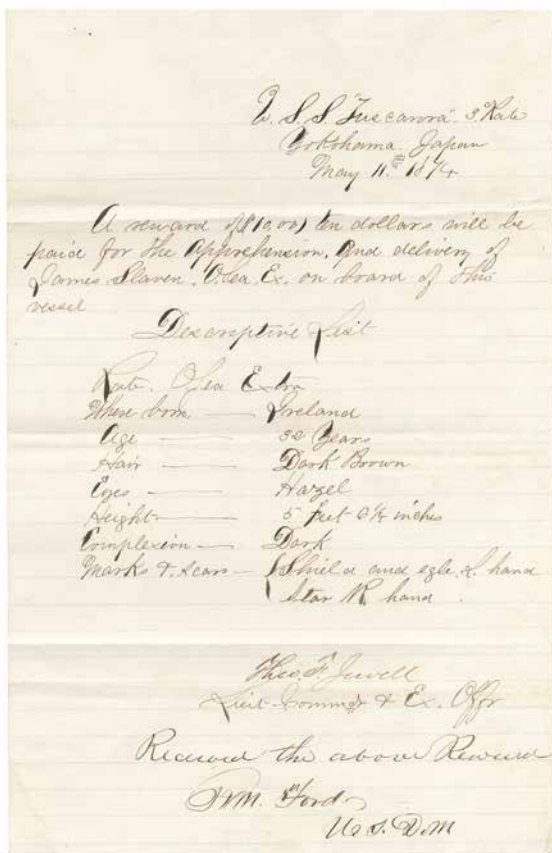 U. S. S. Tuscarora. 3d Rate
Yokohama Japan
May 11th 1874
A reward of ($10,00) ten dollars will be
paid for the Apprehension, and delivery of
James Slaven. O.Sea. Ex. on board of this
vessel
Descriptive List
Rate. O Sea Extra
Where born — Ireland
Age — 32 Years
Hair — Dark Brown
Eyes — Hazel
Height — 5 feet 6¼ inches
Complexion — Dark
Marks & scars — { Shield and egle. L. hand
Star R. hand.
Theo. F. Jewell
Lieut Commdr & Ex. Offr
Received the above Reward
Wm. Ford
U. S. D. M